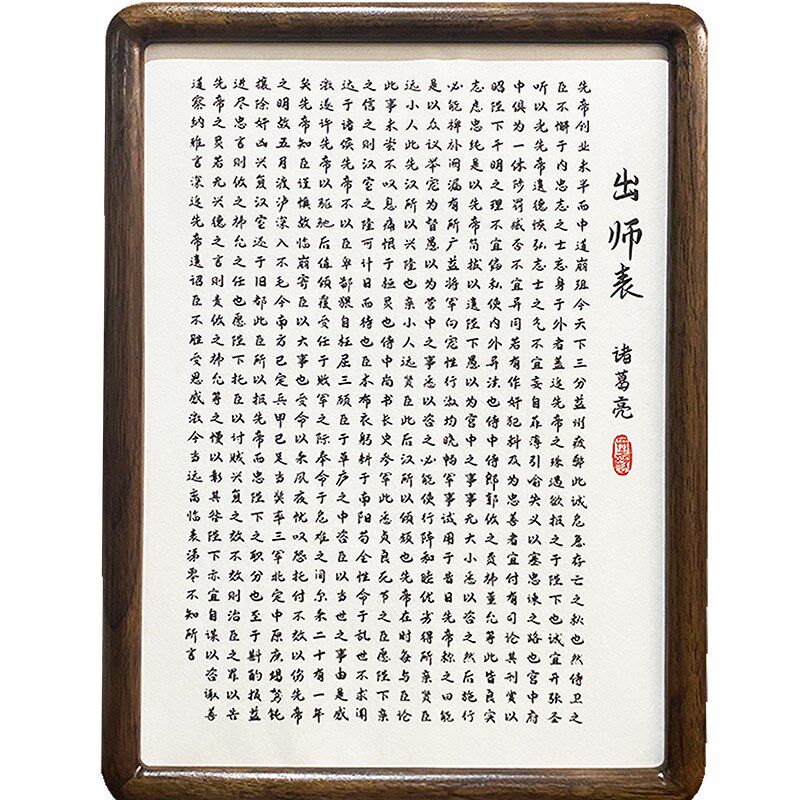 出师表
诸葛亮
先帝创业未半而中道崩殂今天下三分益州疲弊此诚危急存亡之秋也然侍卫之
臣不懈于内忠志之士忘身于外者盖追先帝之殊遇欲报之于陛下也诚宜开张圣
听以光先帝遗德恢弘志士之气不宜妄自菲薄引喻失义以塞忠谏之路也宫中府
中俱为一体陟罚臧否不宜异同若有作奸犯科及为忠善者宜付有司论其刑赏以
昭陛下平明之理不宜偏私使内外异法也侍中侍郎郭攸之费祎董允等此皆良实
志虑忠纯是以先帝简拔以遗陛下愚以为宫中之事事无大小悉以咨之然后施行
必能裨补阙漏有所广益将军向宠性行淑均晓畅军事试用于昔日先帝称之曰能
是以众议举宠为督愚以为营中之事悉以咨之必能使行阵和睦优劣得所亲贤臣
远小人此先汉所以兴隆也亲小人远贤臣此后汉所以倾颓也先帝在时每与臣论
此事未尝不叹息痛恨于桓灵也侍中尚书长史参军此悉贞良死节之臣愿陛下亲
之信之则汉室之隆可计日而待也臣本布衣躬耕于南阳苟全性命于乱世不求闻
达于诸侯先帝不以臣卑鄙猥自枉屈三顾臣于草庐之中咨臣以当世之事由是感
激遂许先帝以驱驰后值倾覆受任于败军之际奉命于危难之间尔来二十有一年
矣先帝知臣谨慎故临崩寄臣以大事也受命以来夙夜忧叹恐托付不效以伤先帝
之明故五月渡泸深入不毛今南方已定兵甲已足当奖率三军北定中原庶竭驽钝
攘除奸凶兴复汉室还于旧都此臣所以报先帝而忠陛下之职分也至于斟酌损益
进尽忠言则攸之祎允之任也愿陛下托臣以讨贼兴复之效不效则治臣之罪以告
先帝之灵若无兴德之言则责攸之祎允等之慢以彰其咎陛下亦宜自谋以咨诹善
道察纳雅言深追先帝遗诏臣不胜受恩感激今当远离临表涕零不知所言